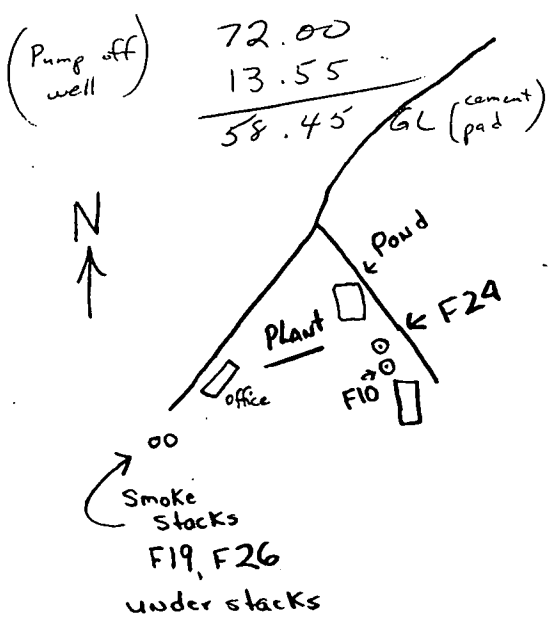 (Pump off
well)
72.00
13.55
58.45 GL (cement
pad)
N
Pond
F24
Plant
F10
office
Smoke
Stacks
F19, F26
under stacks